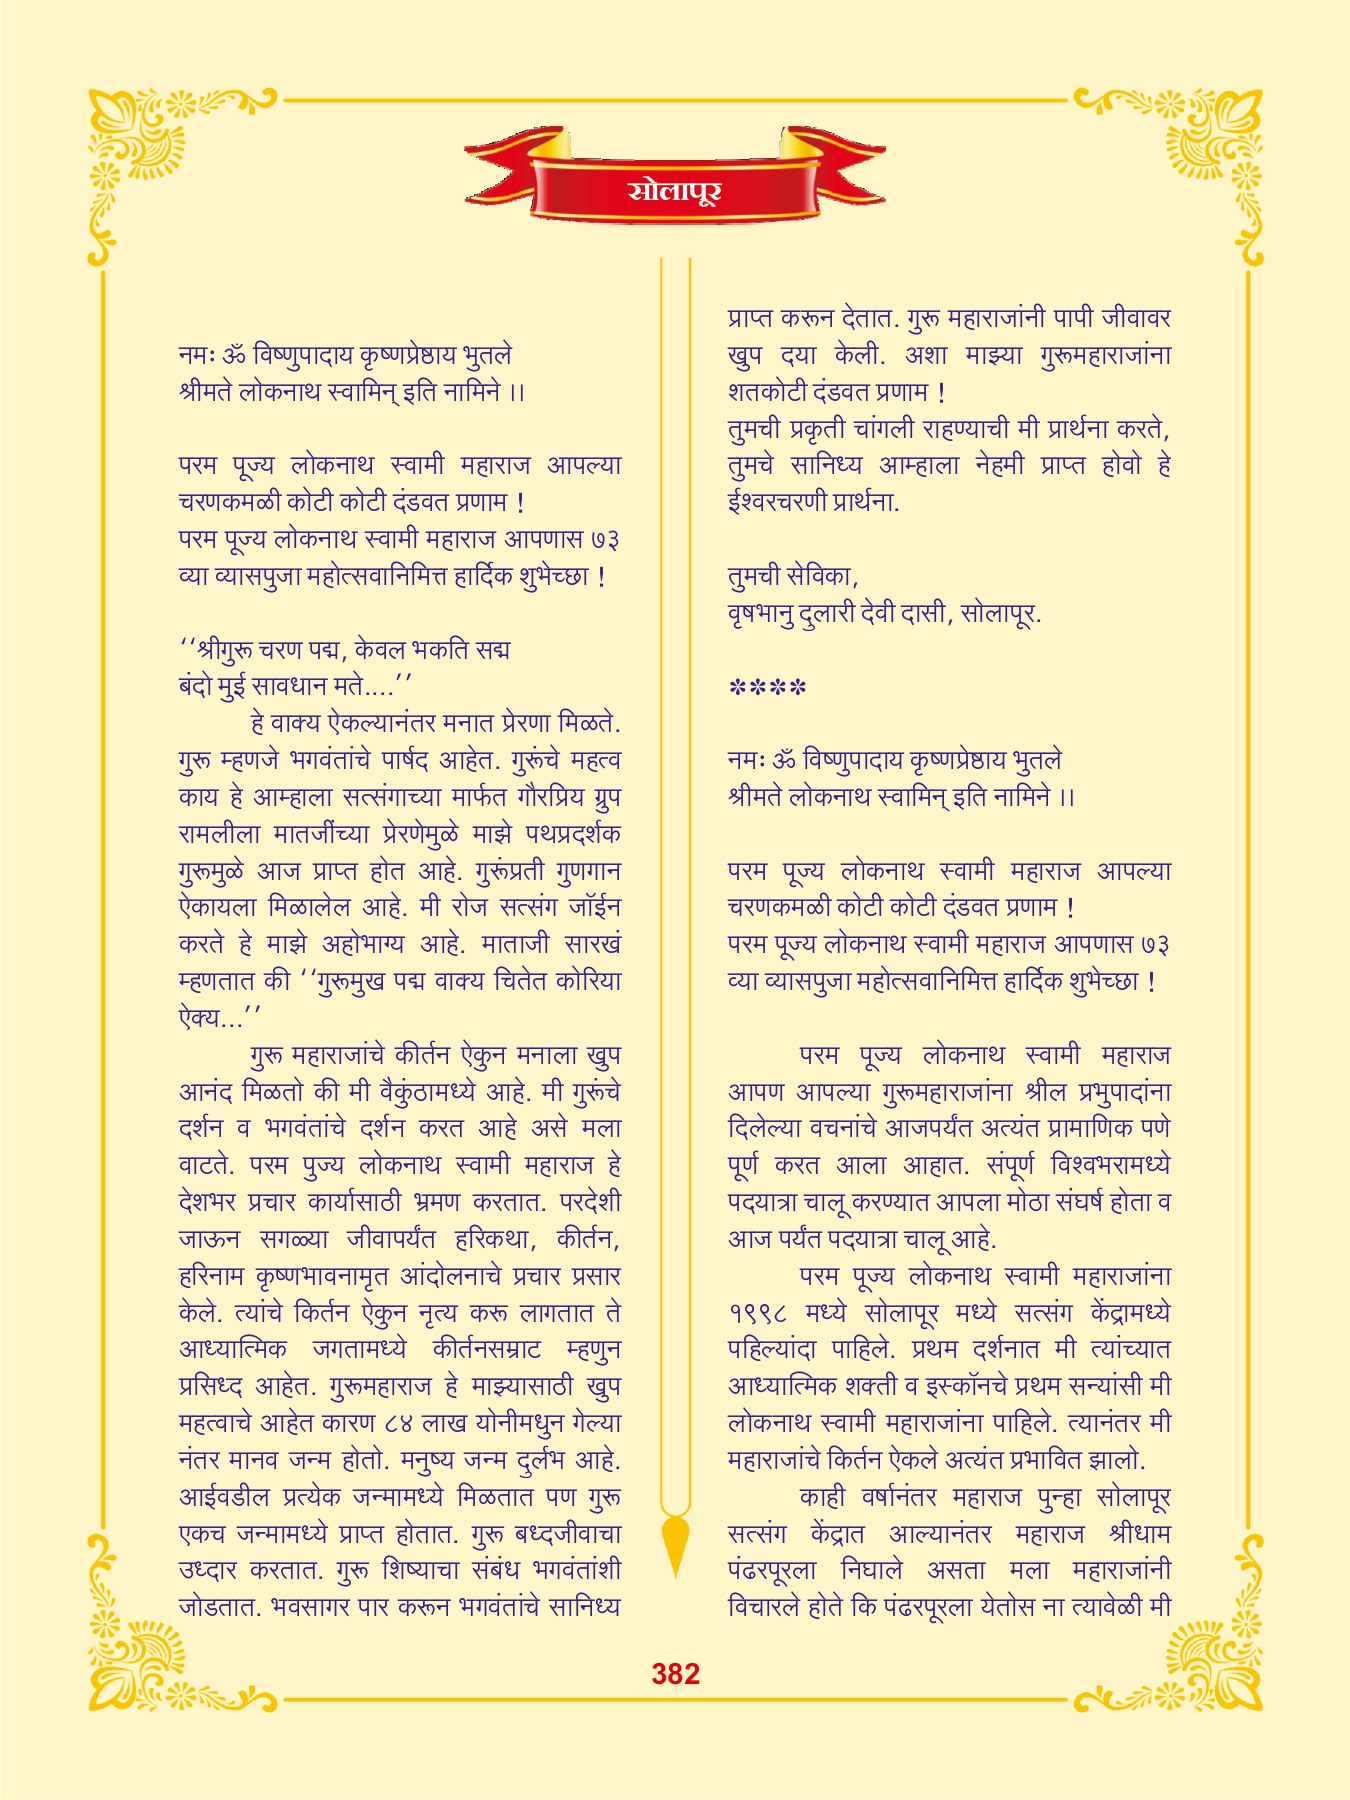 सोलापूर
नमः ॐ विष्णुपादाय कृष्णप्रेष्ठाय भुतले
श्रीमते लोकनाथ स्वामिन् इति नामिने ।।
परम पूज्य लोकनाथ स्वामी महाराज आपल्या
चरणकमळी कोटी कोटी दंडवत प्रणाम !
परम पूज्य लोकनाथ स्वामी महाराज आपणास ७३
व्या व्यासपुजा महोत्सवानिमित्त हार्दिक शुभेच्छा !
‘‘श्रीगुरू चरण पद्म, केवल भकति सद्म
बंदो मुई सावधान मते....’’
हे वाक्य ऐकल्यानंतर मनात प्रेरणा मिळते.
गुरू म्हणजे भगवंतांचे पार्षद आहेत. गुरूंचे महत्व
काय हे आम्हाला सत्संगाच्या मार्फत गौरप्रिय ग्रुप
रामलीला मातजींच्या प्रेरणेमुळे माझे पथप्रदर्शक
गुरूमुळे आज प्राप्त होत आहे. गुरूंप्रती गुणगान
ऐकायला मिळालेल आहे. मी रोज सत्संग जॉईन
करते हे माझे अहोभाग्य आहे. माताजी सारखं
म्हणतात की ‘‘गुरूमुख पद्म वाक्य चितेत कोरिया
ऐक्य...’’
गुरू महाराजांचे कीर्तन ऐकुन मनाला खुप
आनंद मिळतो की मी वैकुंठामध्ये आहे. मी गुरूंचे
दर्शन व भगवंतांचे दर्शन करत आहे असे मला
वाटते. परम पुज्य लोकनाथ स्वामी महाराज हे
देशभर प्रचार कार्यासाठी भ्रमण करतात. परदेशी
जाऊन सगळ्या जीवापर्यंत हरिकथा, कीर्तन,
हरिनाम कृष्णभावनामृत आंदोलनाचे प्रचार प्रसार
केले. त्यांचे किर्तन ऐकुन नृत्य करू लागतात ते
आध्यात्मिक जगतामध्ये कीर्तनसम्राट म्हणुन
प्रसिध्द आहेत. गुरूमहाराज हे माझ्यासाठी खुप
महत्वाचे आहेत कारण ८४ लाख योनीमधुन गेल्या
नंतर मानव जन्म होतो. मनुष्य जन्म दुर्लभ आहे.
आईवडील प्रत्येक जन्मामध्ये मिळतात पण गुरू
एकच जन्मामध्ये प्राप्त होतात. गुरू बध्दजीवाचा
उध्दार करतात. गुरू शिष्याचा संबंध भगवंतांशी
जोडतात. भवसागर पार करून भगवंतांचे सानिध्य
प्राप्त करून देतात. गुरू महाराजांनी पापी जीवावर
खुप दया केली. अशा माझ्या गुरूमहाराजांना
शतकोटी दंडवत प्रणाम !
तुमची प्रकृती चांगली राहण्याची मी प्रार्थना करते,
तुमचे सानिध्य आम्हाला नेहमी प्राप्त होवो हे
ईश्वरचरणी प्रार्थना.
तुमची सेविका,
वृषभानु दुलारी देवी दासी, सोलापूर.
****
नमः ॐ विष्णुपादाय कृष्णप्रेष्ठाय भुतले
श्रीमते लोकनाथ स्वामिन् इति नामिने ।।
परम पूज्य लोकनाथ स्वामी महाराज आपल्या
चरणकमळी कोटी कोटी दंडवत प्रणाम !
परम पूज्य लोकनाथ स्वामी महाराज आपणास ७३
व्या व्यासपुजा महोत्सवानिमित्त हार्दिक शुभेच्छा !
परम पूज्य लोकनाथ स्वामी महाराज
आपण आपल्या गुरूमहाराजांना श्रील प्रभुपादांना
दिलेल्या वचनांचे आजपर्यंत अत्यंत प्रामाणिक पणे
पूर्ण करत आला आहात. संपूर्ण विश्वभरामध्ये
पदयात्रा चालू करण्यात आपला मोठा संघर्ष होता व
आज पर्यंत पदयात्रा चालू आहे.
परम पूज्य लोकनाथ स्वामी महाराजांना
१९९८ मध्ये सोलापूर मध्ये सत्संग केंद्रामध्ये
पहिल्यांदा पाहिले. प्रथम दर्शनात मी त्यांच्यात
आध्यात्मिक शक्ती व इस्कॉनचे प्रथम सन्यांसी मी
लोकनाथ स्वामी महाराजांना पाहिले. त्यानंतर मी
महाराजांचे किर्तन ऐकले अत्यंत प्रभावित झालो.
काही वर्षानंतर महाराज पुन्हा सोलापूर
सत्संग केंद्रात आल्यानंतर महाराज श्रीधाम
पंढरपूरला निघाले असता मला महाराजांनी
विचारले होते कि पंढरपूरला येतोस ना त्यावेळी मी
382